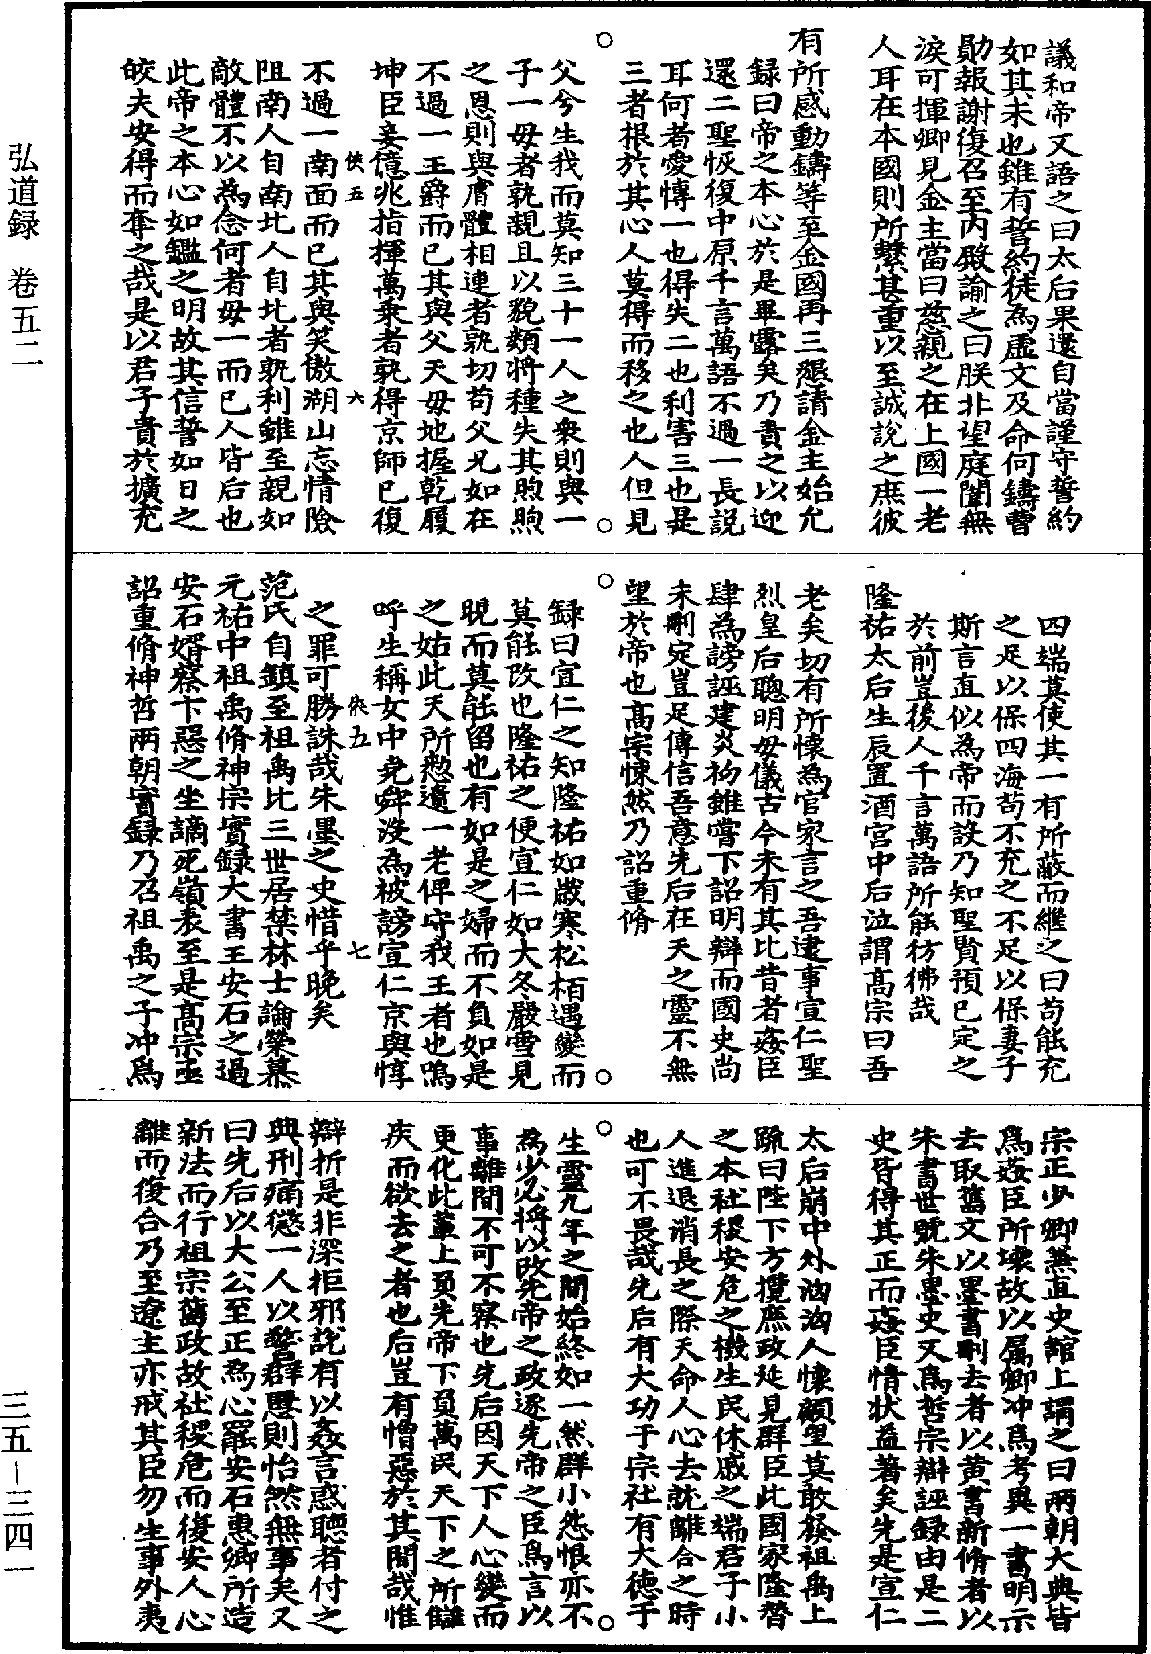 議和帝又語之曰太后果還自當謹守誓約
如其未也雖有誓約徒為虛文及命何鑄曹
勛報謝復召至內殿諭之曰朕北望庭闈無
淚可揮卿見金主當曰慈親之在上國一老
人耳在本國則所繫甚重以至誠說之庶彼
有所感動鑄等至金國再三懇請金主始允
錄曰帝之本心於是畢露矣乃責之以迎
還二聖恢復中原千言萬語不過一長說
耳何者愛慱一也得失二也利害三也是
三者根於其心人莫得而移之也人但見
父兮生我而莫知三十一人之衆則與一
子一毋者孰親且以貌類將種失其煦煦
之恩則與膚體相連者孰切苟父兄如在
不過一王爵而已其與父天毋地握乾履
坤臣妾億兆指揮萬乘者孰得京師已復
不過一南面而已其與笑傲湖山忘情險
阻南人自南北人自北者孰利雖至親如
敵體不以為念何者毋一而已人皆后也
此帝之本心如鑑之明故其信誓如日之
皎夫安得而奪之哉是以君子貴於擴充
俠五
六
四端莫使其一有所蔽而繼之曰苟能充
之足以保四海苟不充之不足以保妻子
斯言直似為帝而設乃知聖賢預已定之
於前豈後人千言萬語所能彷彿哉
隆祐太后生辰置酒宮中后泣謂高宗曰吾
老矣切有所懷為官家言之吾逮事宣仁聖
烈皇后聰明毋儀古今未有其比昔者姦臣
肆為謗誣建炎初雖嘗下詔明辯而國史尚
未刪定豈足傳信吾意先后在天之靈不無
望於帝也高宗悚然乃詔重脩
錄曰宣仁之知隆祐如歲寒松栢遇變而
莫能改也隆祐之便宣仁如大冬嚴雪見
晛而莫能留也有如是之婦而不負如是
之姑此天所憗遺一老俾守我王者也嗚
呼生稱女中堯舜沒為被謗宣仁京與惇
之罪可勝誅哉朱墨之史惜乎晚矣
范氏自鎮至祖禹比三世居禁林士論榮慕
元祐中祖禹脩神宗實錄大書王安石之過
安石婿蔡卞惡之坐謫死嶺表至是高宗亟
詔重脩神哲兩朝實錄乃召祖禹之子冲為
俠五
七
宗正少卿兼直史館上謂之曰兩朝大典皆
為姦臣所壞故以属卿冲為考異一書明示
去取舊文以墨書刪去者以黃書新脩者以
朱書世號朱墨史又為哲宗辯誣錄由是二
史皆得其正而姦臣情狀益著矣先是宣仁
太后崩中外洶洶人懷顧望莫敢發祖禹上
疏曰陛下方攬庶政延見群臣此國家隆替
之本社稷安危之機生民休戚之端君子小
人進退消長之際天命人心去就離合之時
也可不畏哉先后有大功于宗社有大德于
生靈九年之間始終如一然群小怨恨亦不
為少必將以改先帝之政逐先帝之臣為言以
事離間不可不察也先后因天下人心變而
更化此輩上負先帝下負萬民天下之所讎
疾而欲去之者也后豈有憎惡於其間哉惟
辯折是非深拒邪說有以姦言惑聽者付之
典刑痛懲一人以警群慝則怡然無事矣又
曰先后以大公至正為心罷安石惠卿所造
新法而行祖宗舊政故社稷危而復安人心
離而復合乃至遼主亦戒其臣勿生事外夷
弘道録　卷五二
三五－三四一